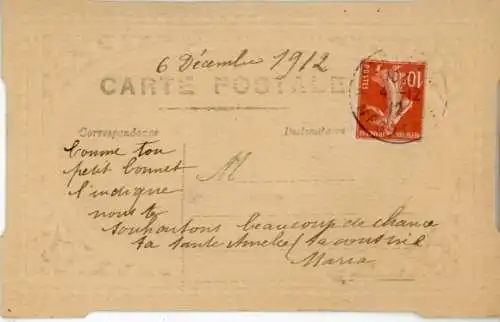 6 Décembre 1912
CARTE POSTALE
Correspondance
Destinataire
M
Comme ton
petit bonnet
l'indique
nous te
souhaitons beaucoup de chance
ta tante Amelie / ta cousine
Maria
10